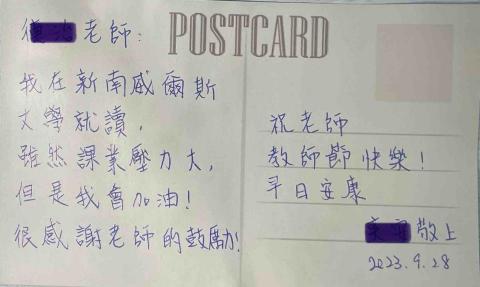 POSTCARD
老師：
我在新南威爾斯
大學就讀，
雖然課業壓力大，
但是我會加油！
很感謝老師的鼓勵！
祝老師
教師節快樂！
平日安康
敬上
2023.9.28